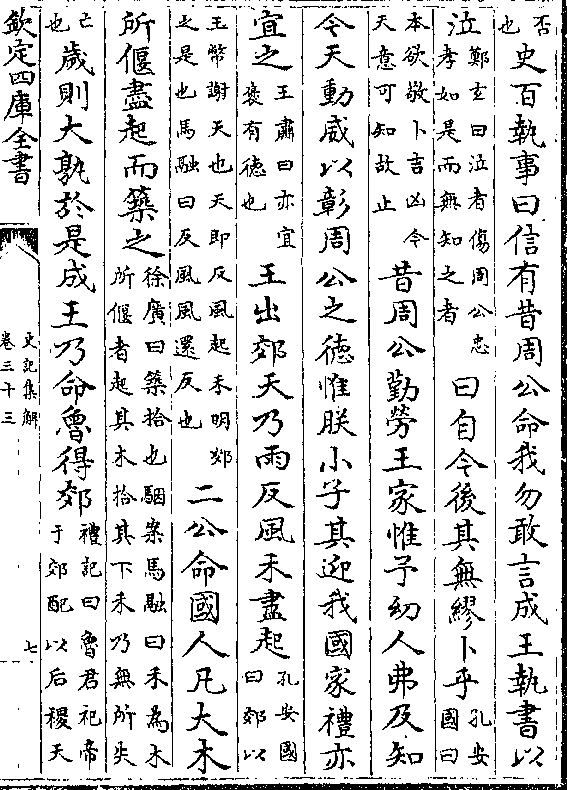 否也史百執事曰信有昔周公命我勿敢言成王執書以
泣鄭玄曰泣者傷周公忠孝如是而無知之者曰自今後其無繆卜乎孔安國曰
本欲敬卜吉凶今天意可知故止昔周公勤勞王家惟予幼人弗及知
今天動威以彰周公之德惟朕小子其迎我國家禮亦
宜之王肅曰亦宜褒有德也王出郊天乃雨反風禾盡起孔安國曰郊以
玉幣謝天也天即反風起禾明郊之是也馬融曰反風風還反也二公命國人凡大木
所偃盡起而築之徐廣曰築拾也駰案馬融曰禾為木所偃者起其木拾其下禾乃無所失
亡也歲則大孰於是成王乃命魯得郊禮記曰魯君祀帝于郊配以后稷天
欽定四庫全書
史記集解
卷三十三
七